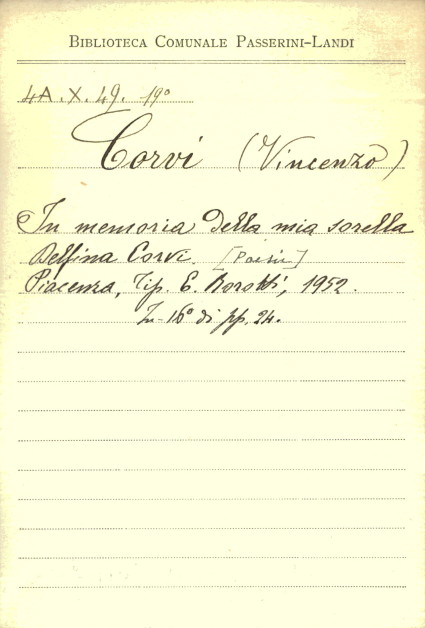 BIBLIOTECA COMUNALE PASSERINI-LANDI
4A.X.49. 19º
Corvi (Vincenzo)
In memoria della mia sorella
Delfina Corvi. [Poesie]
Piacenza, Tip. E. Borotti, 1952.
In-16º di pp. 24.